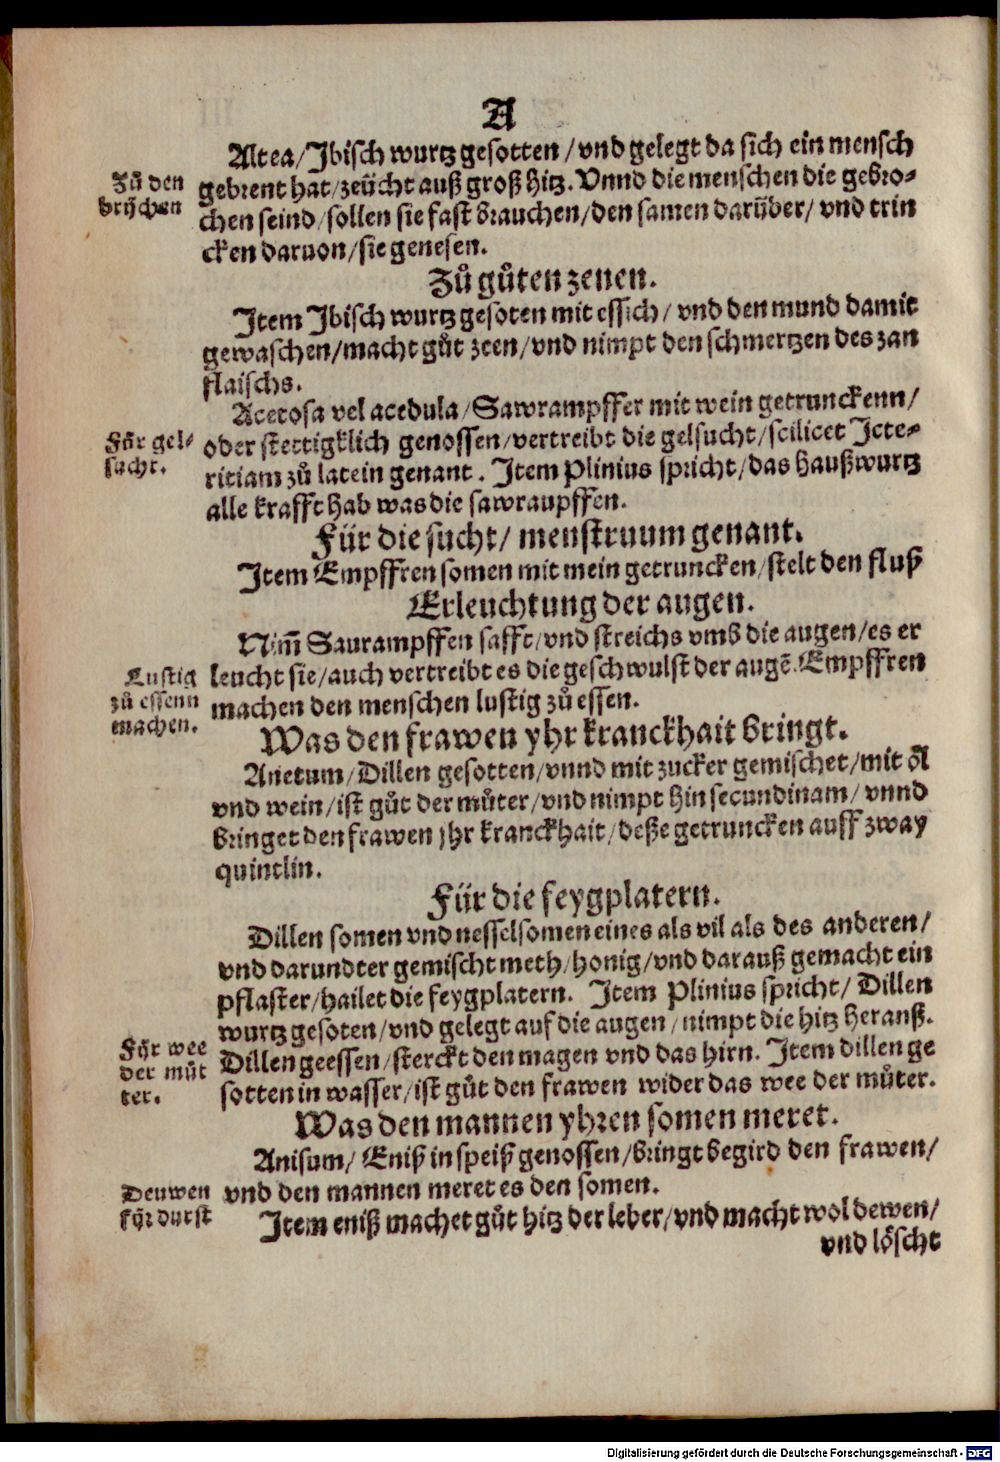 A
Altea/Jbisch wurtz gesotten/vnd gelegt da sich ein mensch
Zů den
brüchen
gebrent hat/zeücht auß groß hitz. Vnnd die menschen die gebro-
chen seind/sollen sie fast brauchen/den samen darüber/vnd trin
cken daruon/sie genesen.
Zů gůten zenen.
Jtem Jbisch wurtz gesoten mit essich/vnd den mund damit
gewaschen/macht gůt zeen/vnd nimpt den schmertzen des zan
flaischs.
Acetosa vel acedula/Sawrampffer mit wein getrunckenn/
Für gel-
sucht.
oder stettigklich genossen/vertreibt die gelsucht/scilicet Jcte-
ritiam zů latein genant. Jtem Plinius spricht/das haußwurtz
alle krafft hab was die sawraupffen.
Für die sucht/menstruum genant.
Jtem Empffren somen mit mein getruncken/stelt den fluß
Erleuchtung der augen.
Nim̄ Saurampffen safft/vnd streichs vmb die augen/es er
Lustig
zů essenn
machen.
leucht sie/auch vertreibt es die geschwulst der augē. Empffren
machen den menschen lustig zů essen.
Was den frawen yhr kranckhait bringt.
Anetum/Dillen gesotten/vnnd mit zucker gemischet/mit öl
vnd wein/ist gůt der můter/vnd nimpt hin secundinam/vnnd
bringet den frawen jhr kranckhait/deße getruncken auff zway
quintlin.
Für die feygplatern.
Dillen somen vnd nesselsomen eines als vil als des anderen/
vnd darundter gemischt meth/honig/vnd darauß gemacht ein
pflaster/hailet die feygplatern. Jtem Plinius spricht/Dillen
wurtz gesoten/vnd gelegt auf die augen/nimpt die hitz herauß.
Für wee
der můt
ter.
Dillen geessen/sterckt den magen vnd das hirn. Jtem dillen ge
sotten in wasser/ist gůt den frawen wider das wee der můter.
Was den mannen yhren somen meret.
Anisum/Eniß in speiß genossen/bringt begird den frawen/
Deuwen
für durst
vnd den mannen meret es den somen.
Jtem eniß machet gůt hitz der leber/vnd macht wol dewen/
vnd löscht
Digitalisierung gefördert durch die Deutsche Forschungsgemeinschaft - DFG